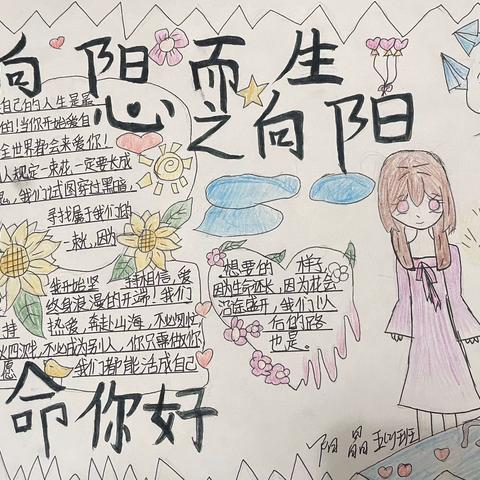 向阳而生
心之向阳
自己的人生是最
的!当你开始爱自
全世界都会来爱你!
人规定一束花,一定要长成
我们试图穿过黑暗,
寻找属于我们的
一束,因为
我开始坚 持相信,爱
终身浪漫的开端!我们
持 热爱,奔赴山海,不必匆忙
火四溅,不必成为别人,你只需做你
愿 我们都能活成自己
想要的 样子,
因为生命还长,因为花会
沿途盛开,我们以
后的路
也是。
命你好
阳晶 五(2)班